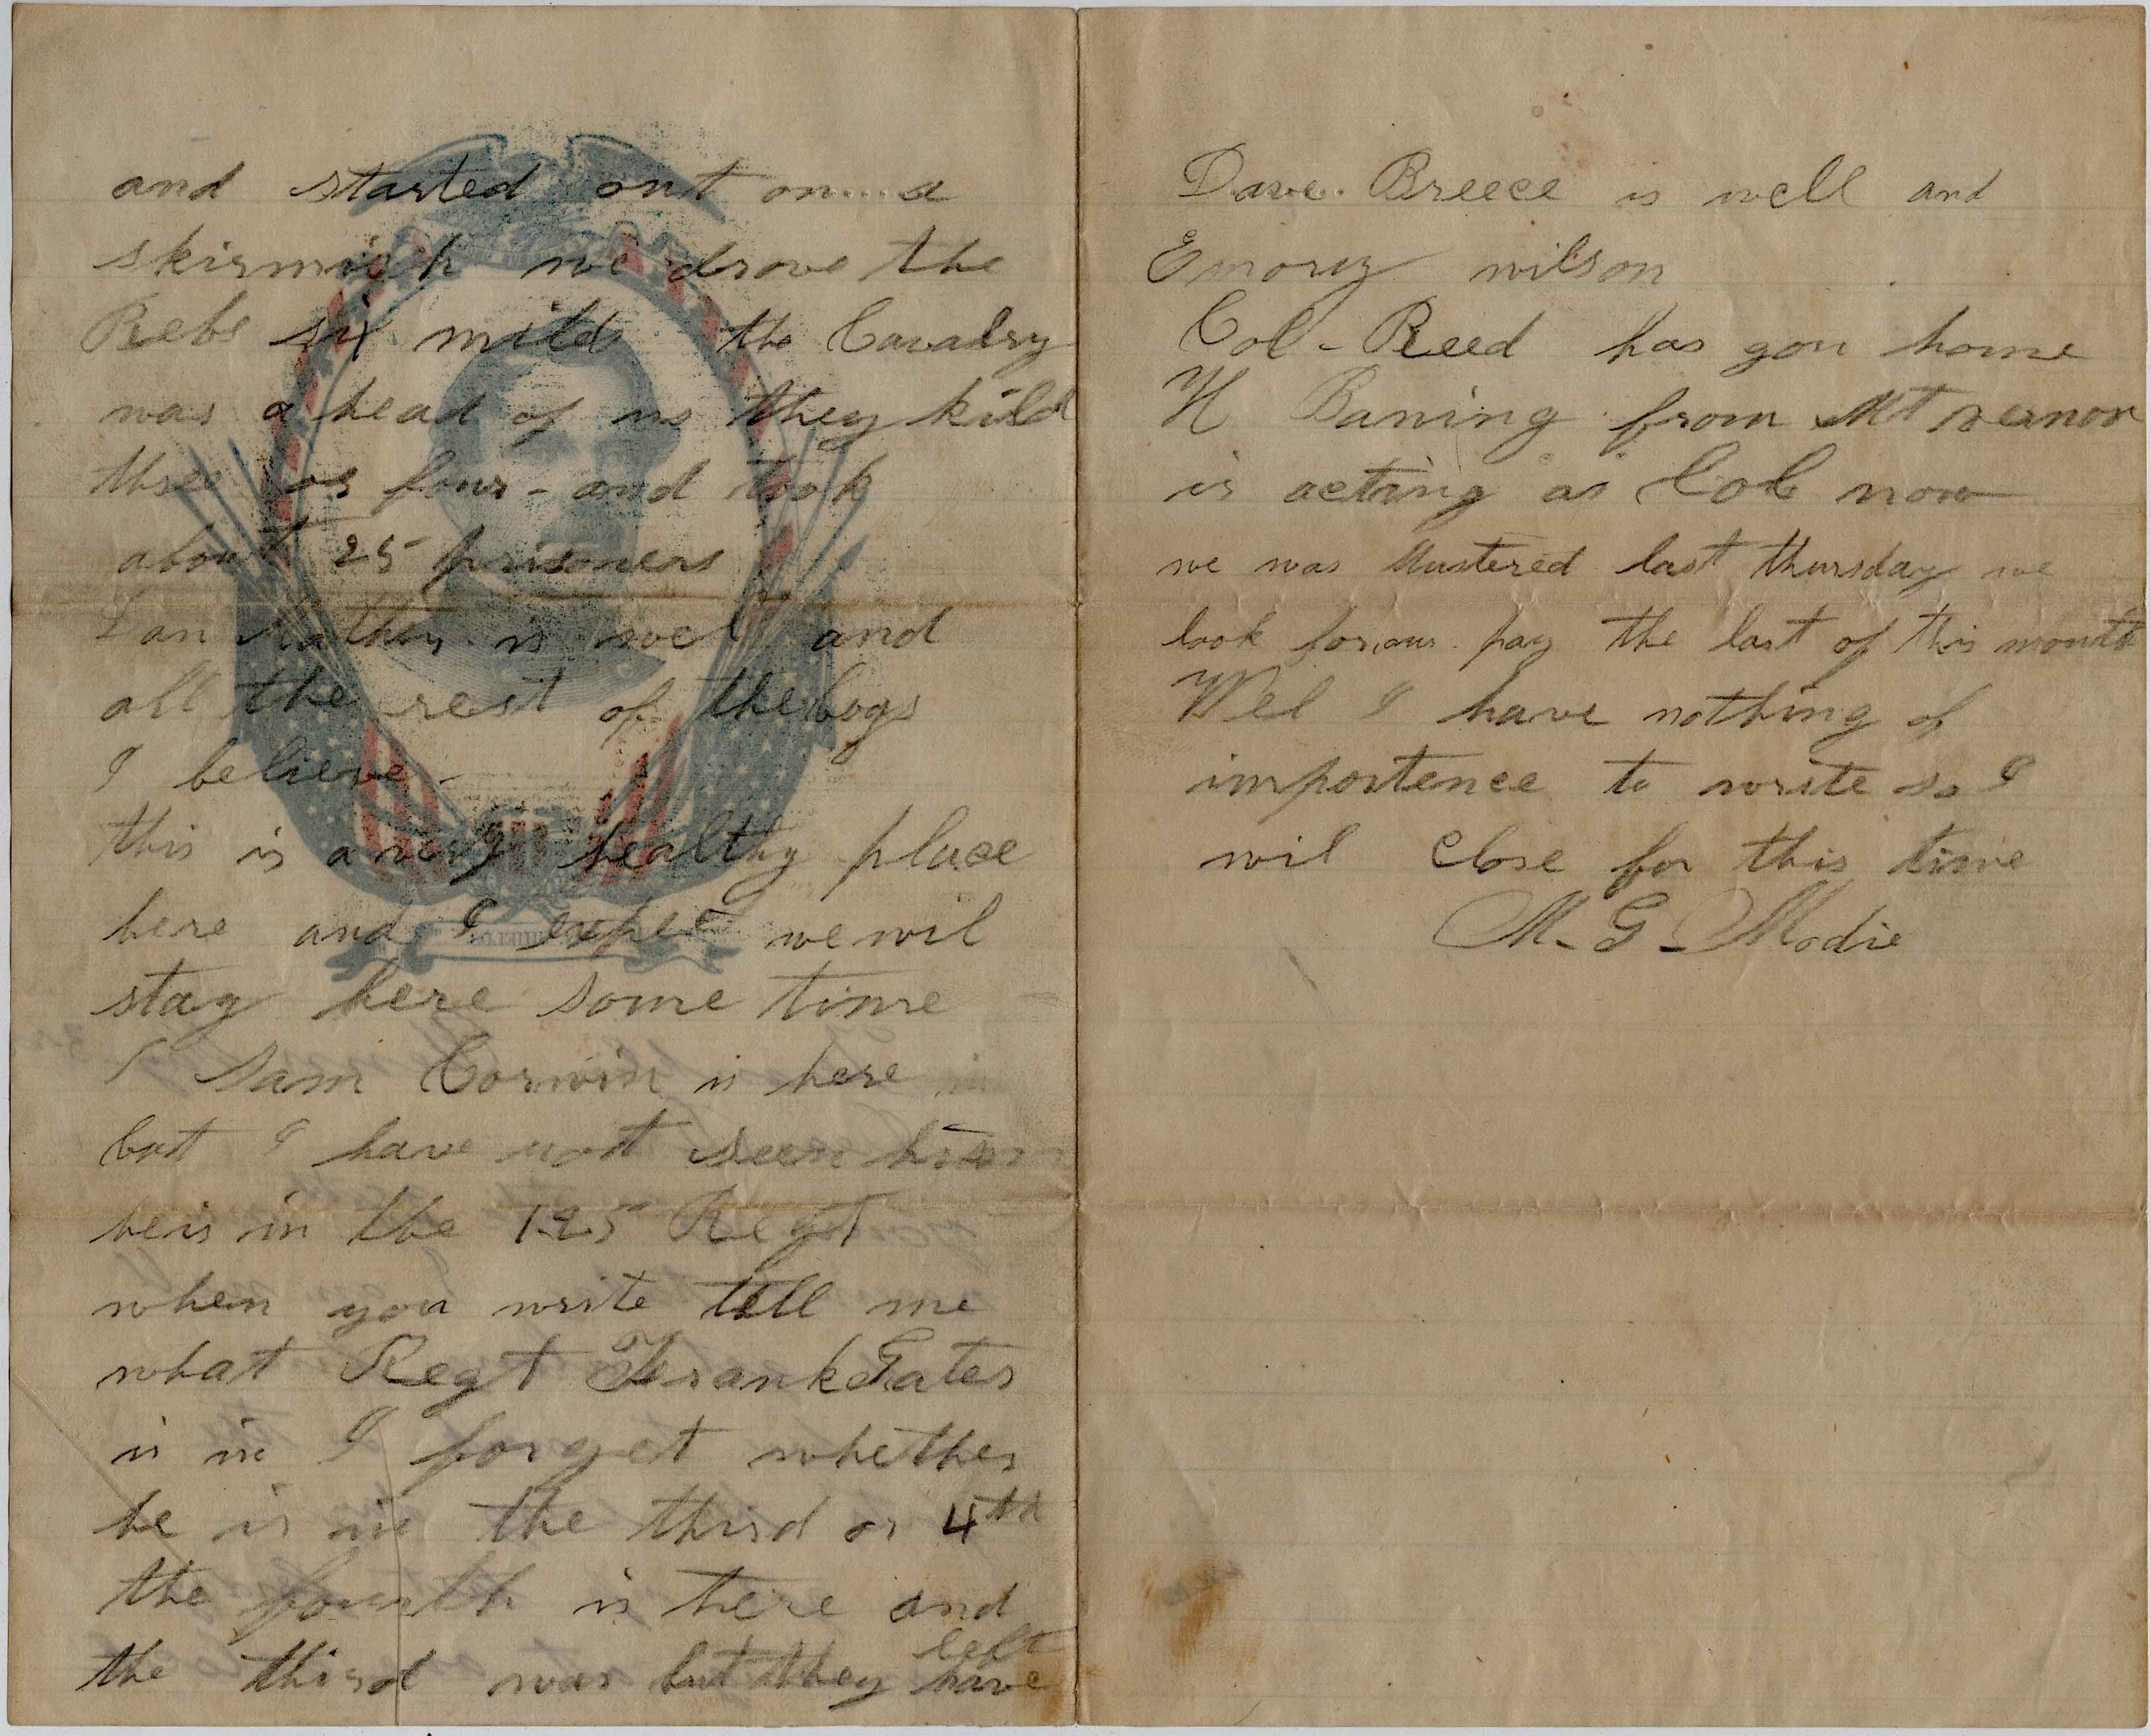 and started out on a
skirmich we drove the
Rebs six mild the Cavalry
was a head of us they kild
three or four - and took
about 25 prisoners
is wel and
all the rest of the boys
I believe -
this is a very healthy place
here and I expet we wil
stay here some time
Sam Corwin is here
but I have not seen him
he is in the 125 Regt
when you write tell me
what Regt Frank Gates
is in I forget whether
he is in the third or 4th
the fourth is here and
the third was but they have left
Dave. Breece is well and
Emory wilson
Col - Reed has gon home
H Baning from Mt vernon
is acting as Col now
we was Mustered last thursday we
look for our pay the last of this month
Wel I have nothing of
importence to write so I
wil close for this time
M - G - Modie